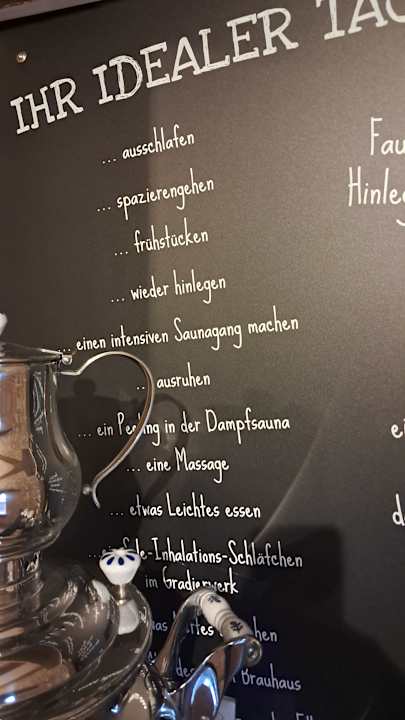 IHR IDEALER TAG
... ausschlafen
... spazierengehen
... frühstücken
... wieder hinlegen
... einen intensiven Saunagang machen
... ausruhen
... ein Peeling in der Dampfsauna
... eine Massage
... etwas Leichtes essen
Sole-Inhalations-Schläfchen
im Gradierwerk
Brauhaus
Fau
Hinleg